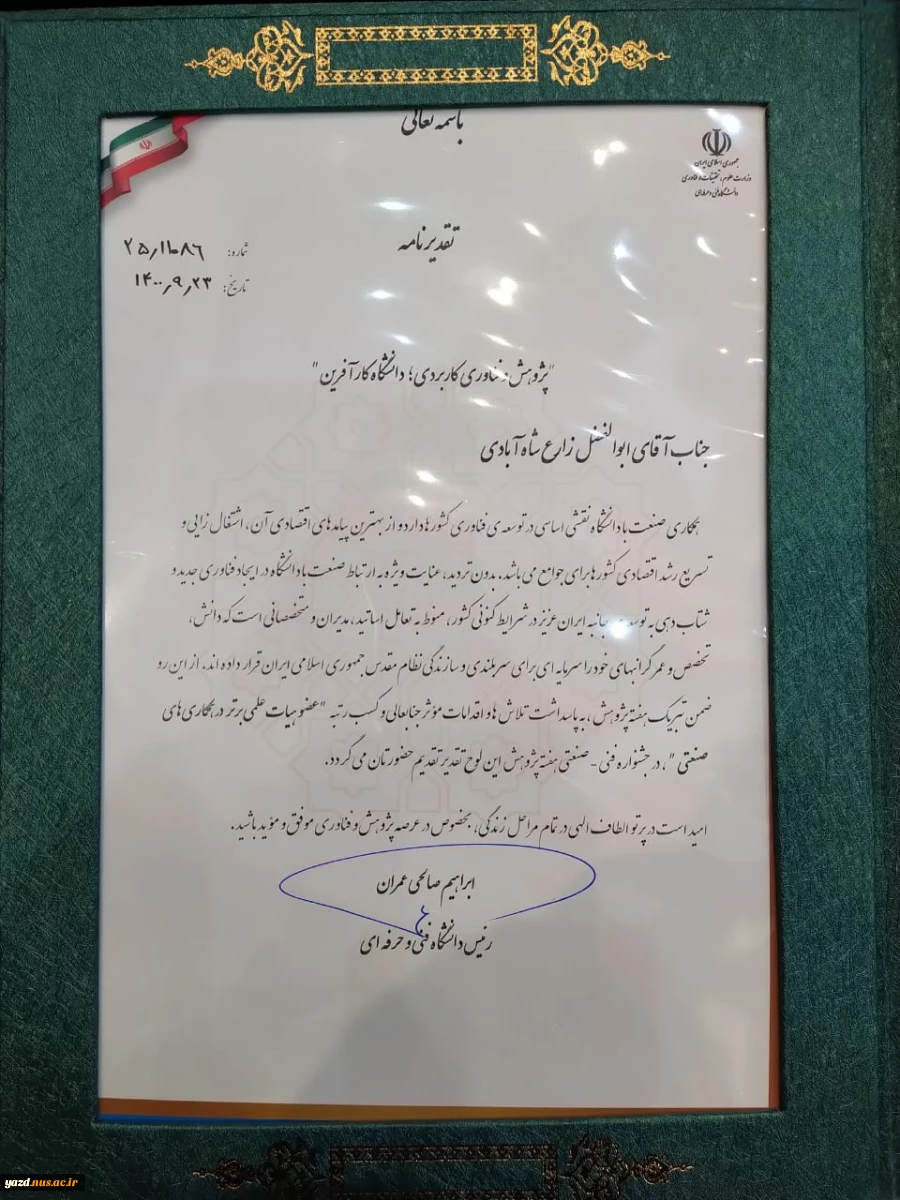 باسمه تعالی
جمهوری اسلامی ایران
وزارت علوم، تحقیقات و فناوری
دانشگاه فنی و حرفه‌ای
شماره: ۲۵٫۱۱۰۸۶
تاریخ: ۱۴۰۰٫۹٫۲۳
تقدیرنامه
"پژوهش و فناوری کاربردی؛ دانشگاه کارآفرین"
جناب آقای ابوالفضل زارع شاه آبادی
همکاری صنعت با دانشگاه نقشی اساسی در توسعه ی فناوری کشورها دارد و از بهترین پیامدهای اقتصادی آن، اشتغال زایی و
تسریع رشد اقتصادی کشورها برای جوامع می باشد. بدون تردید، عنایت ویژه به ارتباط صنعت با دانشگاه در ایجاد فناوری جدید و
شتاب دهی به توسعه جانبه ایران عزیز در شرایط کنونی کشور، منوط به تعامل اساتید، مدیران و متخصصانی است که دانش،
تخصص و عمر گرانبهای خود را سرمایه ای برای سربلندی و سازندگی نظام مقدس جمهوری اسلامی ایران قرار داده اند. از این رو
ضمن تبریک هفته پژوهش، به پاسداشت تلاش ها و اقدامات مؤثر جنابعالی و کسب رتبه "عضو هیات علمی برتر در همکاری های
صنعتی"، در جشنواره فنی - صنعتی هفته پژوهش این لوح تقدیر تقدیم حضورتان می گردد.
امید است در پرتو الطاف الهی در تمام مراحل زندگی، بخصوص در عرصه پژوهش و فناوری موفق و مؤید باشید.
ابراهیم صالحی عمران
رئیس دانشگاه فنی و حرفه ای
yazd.nus.ac.ir